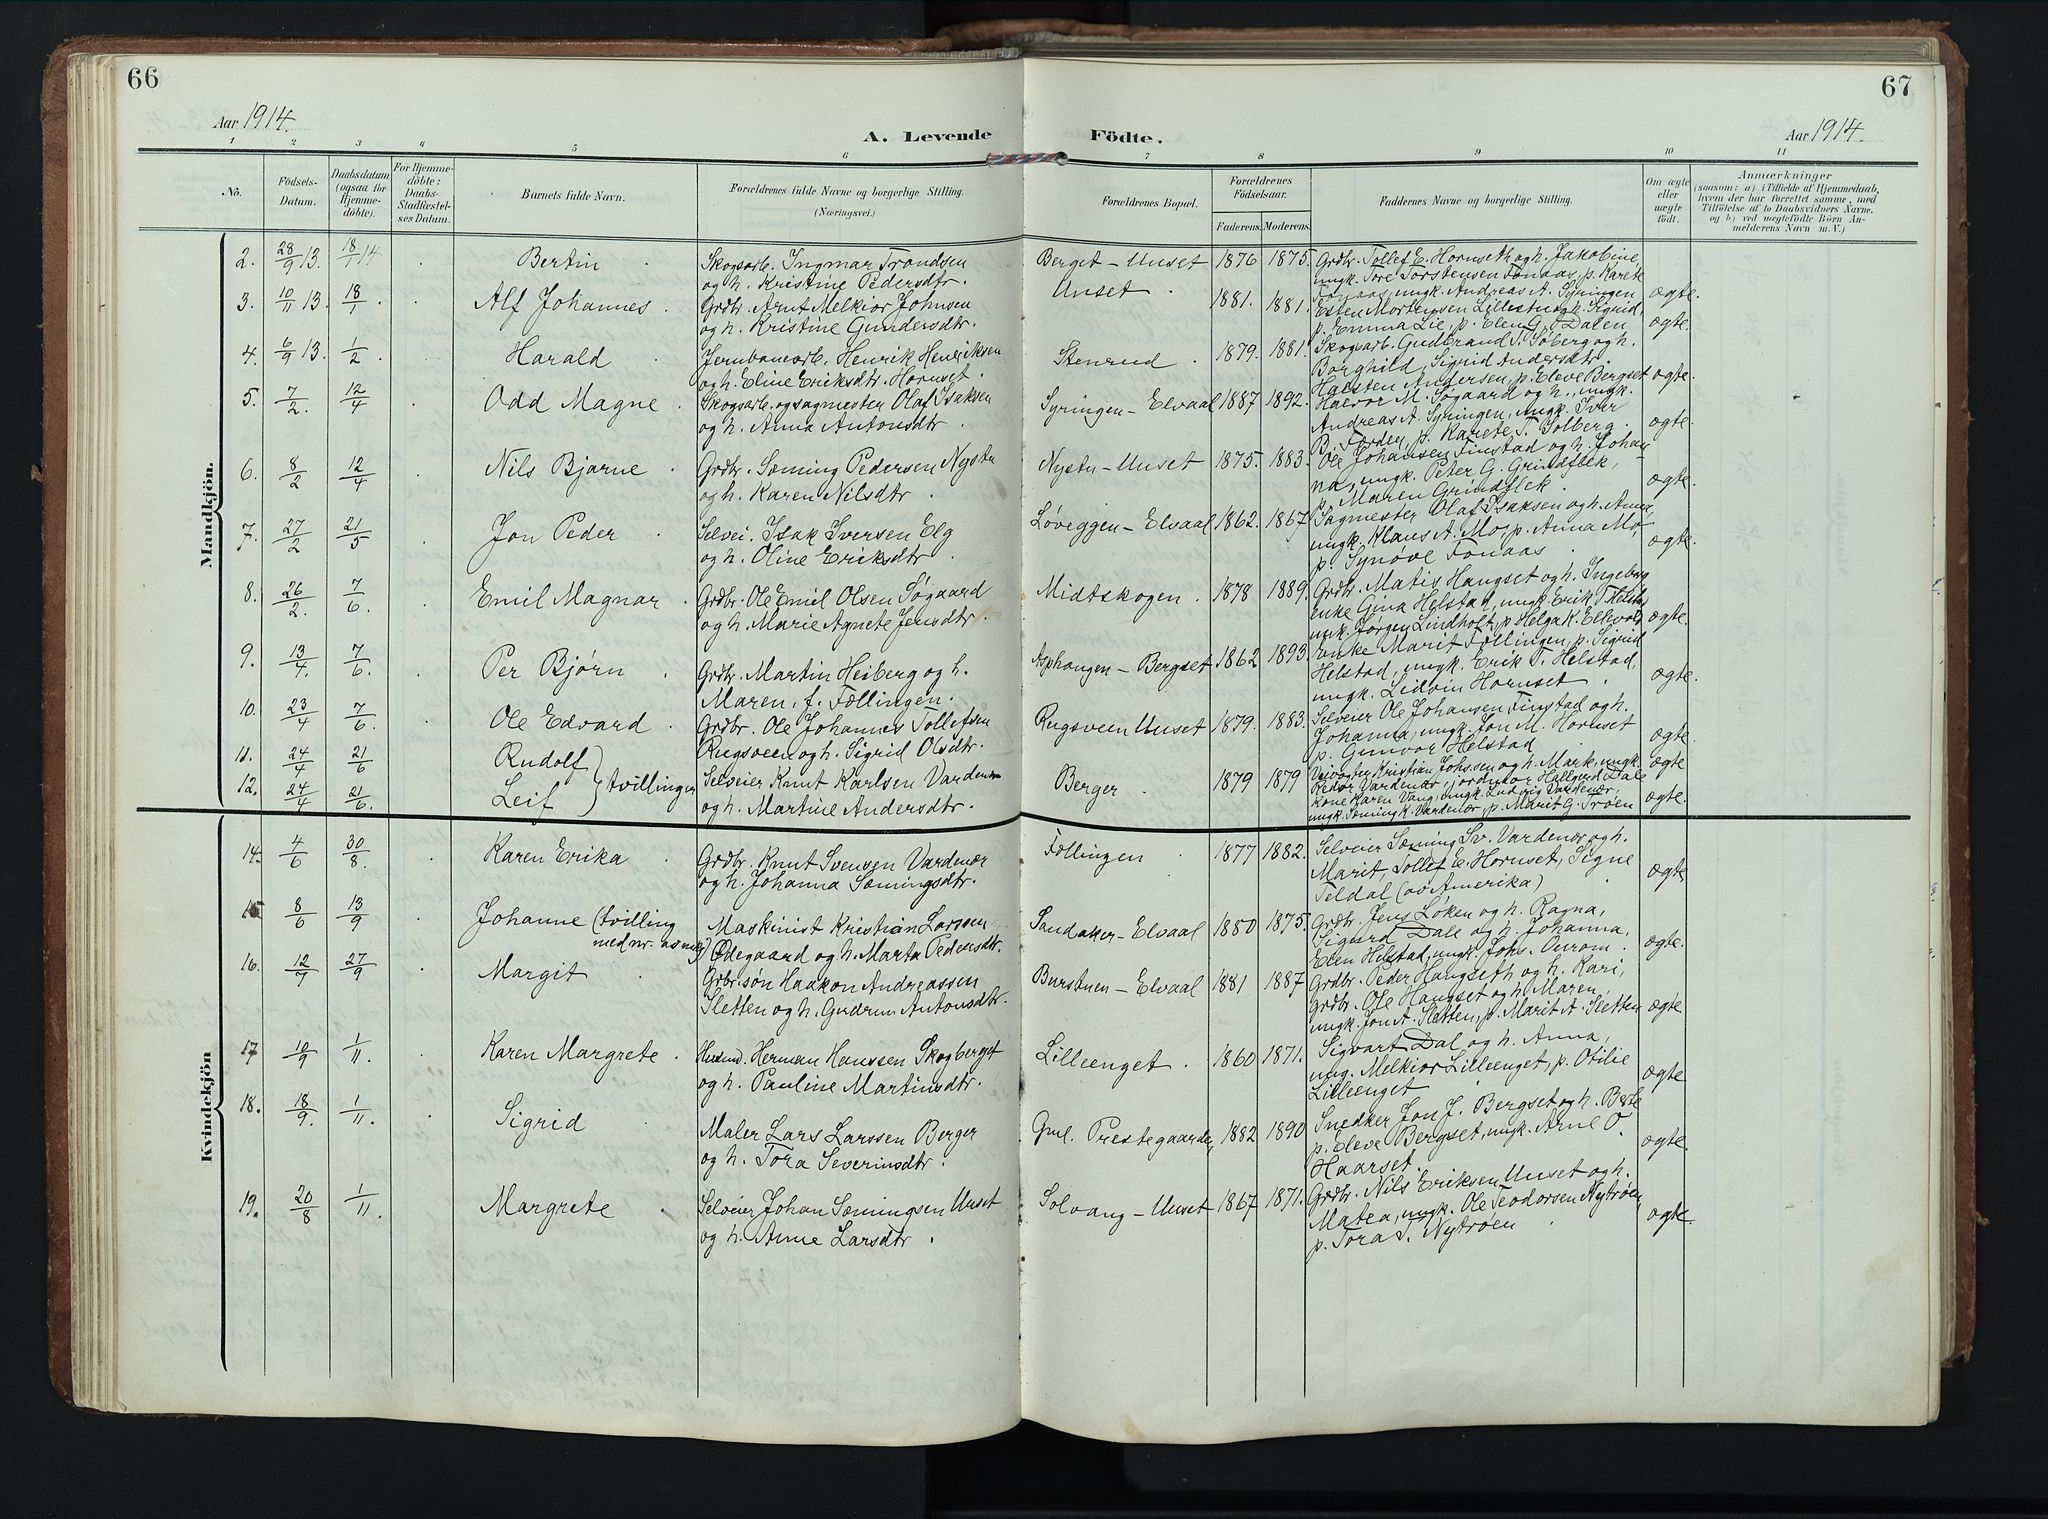 66
67
Aar 1914.
A. Levende Födte.
Aar 1914.
1 2 3 4 5 6 7 8 9 10 11
No.
Födsels-Datum.
Daabsdatum (ogsaa for Hjemme-döbte).
For Hjemme-döbte: Daabs-Stadfæstel-ses Datum.
Barnets fulde Navn.
Forældrenes fulde Navne og borgerlige Stilling.
(Næringsvei.)
Forældrenes Bopæl.
Forældrenes Födselsaar.
Faderens. Moderens.
Faddernes Navne og borgerlige Stilling.
Om ægte eller uægte födt.
Anmærkninger
(saasom: a) i Tilfælde af Hjemmedaab,
hvem der har forrettet samme, med
Tilföielse af to Daabsvidners Navne,
og b) ved uægtefödte Börn An-
melderens Navn m. V.)
Mandkjön.
2. 28/9 13. 18/1 14 Bertin Skogsarb. Ingmar Trondsen
og h. Kristine Pedersdtr.
Berget - Unset 1876 1875. Grdbr. Tollef E. Hornseth og h. Jakobine,
ungk. Tore Torstensen Fonaas, p. Karete
Fonaas, ungk. Andreas A. Syringen ægte.
3. 10/11 13. 18/1 Alf Johannes Grdbr. Arnt Melkior Johnsen
og h. Kristine Gundersdtr.
Unset 1881. 1881. Esten Mortensen Lillestu og h. Sigrid,
p. Emma Lie, p. Elen G. Dalen, ægte.
4. 6/9 13. 1/2 Harald Jernbanearb. Henrik Henriksen
og h. Eline Eriksdtr. Hornset.
Stenrud 1879. 1881. Skogsarb. Gudbrand T. Soberg og h.
Borghild, Sigrid Andersdtr.
Halsten Andersen, p. Eleve Bergset ægte.
5. 7/2. 12/4 Odd Magne Skogsarb. og sagmester Olaf Isaksen
og h. Anna Antonsdtr.
Syringen - Elvaal 1887 1892. Halvor M. Søgaard og h., ungk.
Andreas A. Syringen, ungk. Iver
B. Forden, p. Karete T. Solberg. ægte.
6. 8/2 12/4 Nils Bjarne Grdbr. Sæming Pedersen Nystu
og h. Karen Nilsdtr.
Nystu - Unset 1875. 1883. Ole Johansen Finstad og h. Johan-
na, ungk. Peter G. Grindflek,
p. Maren Grindflek. ægte.
7. 27/2 21/5 Jon Peder Selvei. Isak Iversen Elg
og h. Oline Eriksdtr.
Løveggen - Elvaal 1862. 1867 Sagmester Olaf Isaksen og h. Anna,
ungk. Klaus A. Mo, p. Anna Mo,
p. Synøve Fonaas ægte.
8. 26/2. 7/6. Emil Magnar Grdbr. Ole Emil Olsen Søgaard
og h. Marie Agnete Jensdtr.
Midtskogen. 1878 1889. Grdbr. Matis Hangset og h. Ingeborg
enke Gina Helstad, ungk. Erik T. Helstad,
ungk. Jørgen Lindholt, p. Helga K. Elkvold ægte.
9. 13/4. 7/6. Per Bjørn Grdbr. Martin Heiberg og h.
Maren, f. Føllingen.
Asphaugen - Bergset 1862 1893. Enke Marit Føllingen, p. Sigrid
Helstad, ungk. Erik T. Helstad,
ungk. Lidvin Hornset ægte.
10. 23/4 7/6. Ole Edvard. Grdbr. Ole Johannes Tollefsen
Rugsveen og h. Sigrid Olsdtr.
Rugsveen Unset 1879. 1883. Selveier Ole Johansen Finstad og h.
Johanna, ungk. Jon M. Hornset
p. Gunvor Helstad ægte.
11. 24/4 21/6 Rudolf
12. 24/4 21/6. Leif } tvillinger Selveier Knut Karlsen Vardenær
og h. Martine Andersdtr.
Berger 1879 1879 Veivogter Kristian Johssen og h. Mark, ungk.
Reidar Vardenær, jordmor Hallgerd Dale ægte
Kone Karen Vang, ungk. Ludvig Vardenær,
ungk. Sæming K. Vardenær, p. Marit G. Trøen ægte.
Kvindekjön
14. 4/6 30/8. Karen Erika Grdbr. Knut Svensen Vardenær
og h. Johanna Sæmingsdtr.
Føllingen 1877 1882. Selveier Sæming Sv. Vardenær og h.
Marit, Tollef E. Hornset, Signe
Teldal (av Amerika) ægte
15 8/6 13/9 Johanne (tvilling
med nr.
Maskinist Kristian Larssen
Ødegaard og h. Marta Pedersdtr.
Sandaker - Elvaal 1880 1875. Grdbr. Jens Løken og h. Ragna,
Sigurd Dale og h. Johanna,
Elen Helstad, ungk. Johs. Ourom. ægte.
16. 12/7 27/9 Margit Grdbr.søn Haakon Andreassen
Sletten og h. Gudrun Antonsdtr.
Burstuen - Elvaal 1881 1887 Grdbr. Peder Hangseth og h. Kari,
Grdbr. Ole Hangset og h. Maren,
ungk. Jon A. Sletten, p. Marit A. Sletten ægte
17 10/9 1/11. Karen Margrete. Husmd. Herman Hanssen Skogberget
og h. Pauline Martinsdtr.
Lilleenget. 1860 1871. Sigvart Dal og h. Anna,
ung. Melkior Lilleenget, p. Otilie
Lilleenget ægte
18. 18/9. 1/11. Sigrid Maler Lars Larssen Berger
og h. Tora Severinsdtr.
Gml. Prestegaarden, 1882 1890 Snedker Jon J. Bergset og h. Berte
p. Eleve Bergset, ungk. Arne O.
Haarset. ægte.
19. 20/8 1/11. Margrete Selveier Johan Sæmingsen Unset
og h. Anne Larsdtr.
Solvang - Unset 1867 1871. Grdbr. Nils Eriksen Unset og h.
Matea, ungk. Ole Teodorsen Nytrøen,
p. Tora T. Nytrøen ægte.